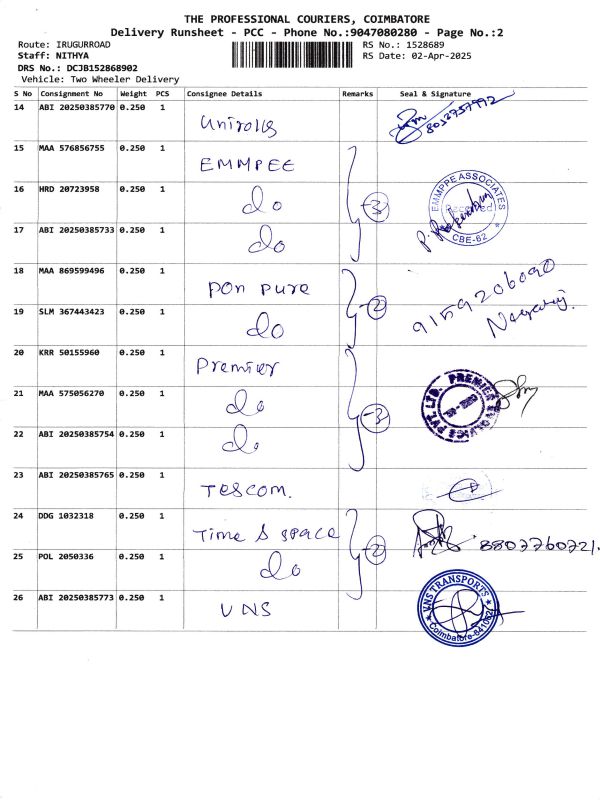 THE PROFESSIONAL COURIERS, COIMBATORE
Delivery Runsheet - PCC - Phone No.:9047080280 - Page No.:2
Route: IRUGURROAD
RS No.: 1528689
Staff: NITHYA
RS Date: 02-Apr-2025
DRS No.: DCJB152868902
Vehicle: Two Wheeler Delivery
S No Consignment No Weight PCS Consignee Details Remarks Seal & Signature
14 ABI 20250385770 0.250 1 8012757992
15 MAA 576856755 0.250 1 EMMPEE
16 HRD 20723958 0.250 1 do 3 EMMPPE ASSOCIATES Received CBE-62
17 ABI 20250385733 0.250 1 do
18 MAA 869599496 0.250 1 pon pure 2 9159206090
19 SLM 367443423 0.250 1 do
20 KRR 50155960 0.250 1 Premier
21 MAA 575056270 0.250 1 do 3 PVT. LTD. PREMIER
22 ABI 20250385754 0.250 1 do
23 ABI 20250385765 0.250 1 Tescom.
24 DDG 1032318 0.250 1 Time & space 2 8807760721.
25 POL 2050336 0.250 1 do
26 ABI 20250385773 0.250 1 VNS VNS TRANSPORTS Coimbatore-641062